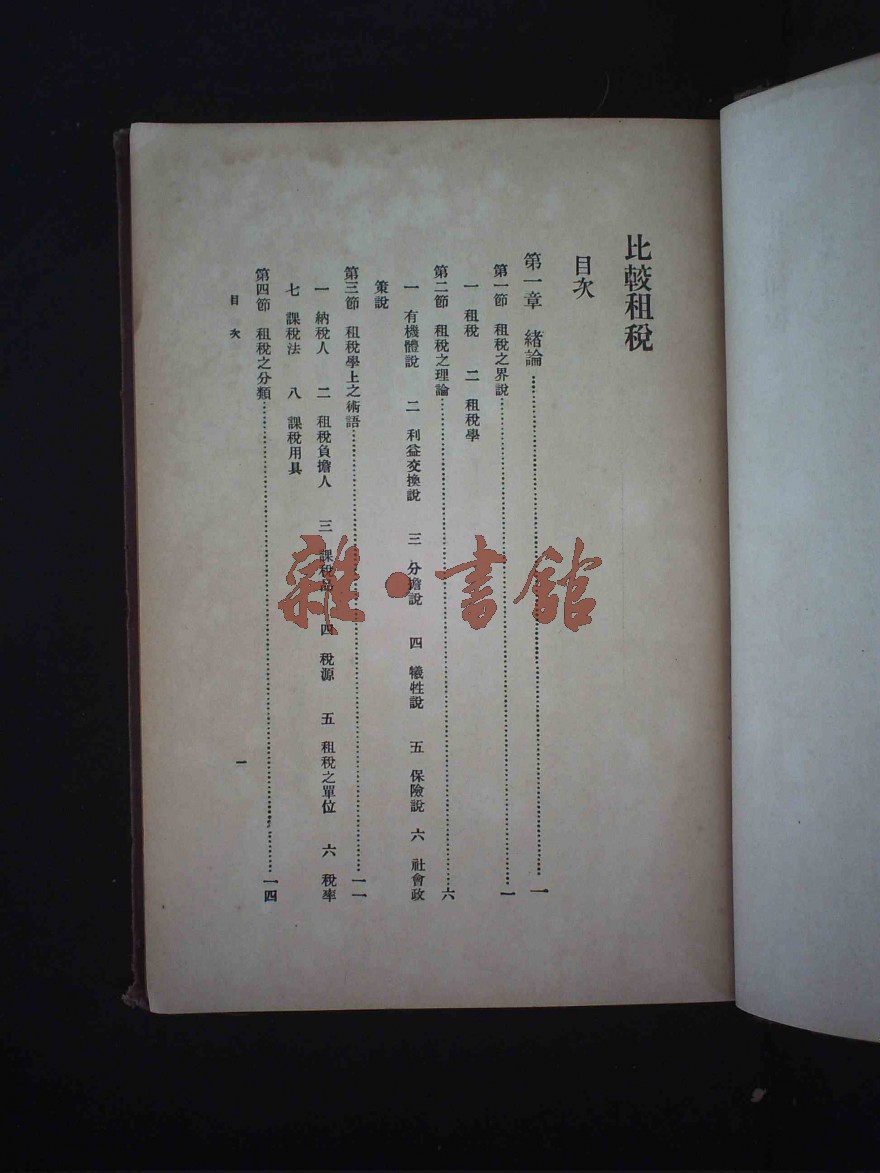 比較租稅
目次
第一章 緒論…………一
第一節 租稅之界說…………一
一 租稅 二 租稅學
第二節 租稅之理論…………六
一 有機體說 二 利益交換說 三 分擔說 四 犧牲說 五 保險說 六 社會政
策說
第三節 租稅學上之術語…………一一
一 納稅人 二 租稅負擔人 三 課稅品 四 稅源 五 租稅之單位 六 稅率
七 課稅法 八 課稅用具
第四節 租稅之分類…………一四
目次 一
雜·書館